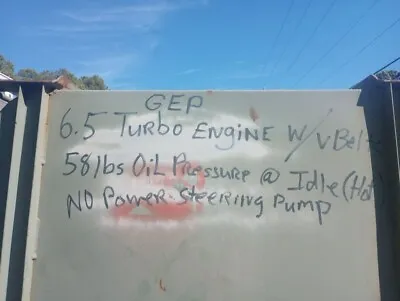 GEP
6.5 Turbo Engine w/v Belts
58 lbs Oil Pressure @ Idle (Hot)
NO Power Steering Pump